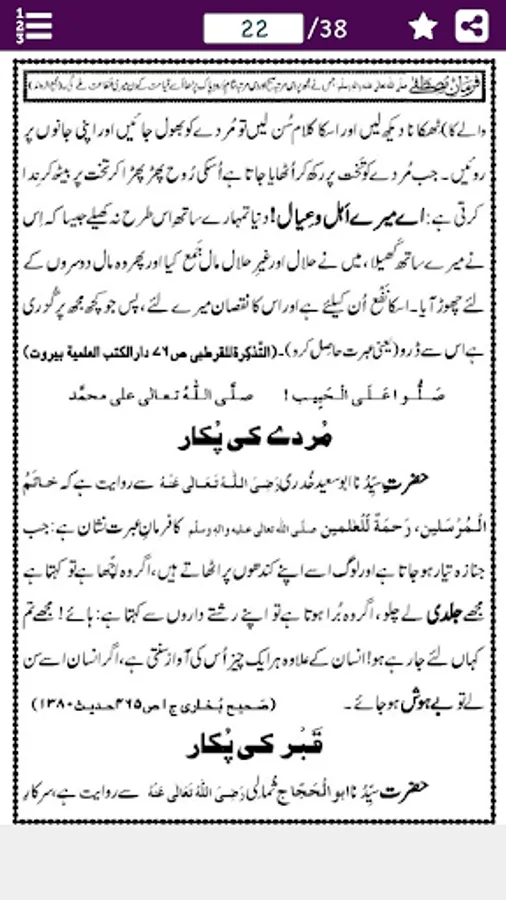 1
2
3
22 /38
فرمانِ مصطفٰے صلی اللہ تعالیٰ علیہ واٰلہٖ وسلم جس نے مجھ پر دس مرتبہ صبح اور دس مرتبہ شام درود پاک پڑھا اُسے قیامت کے دن میری شفاعت ملے گی۔ (مجمع الزوائد)
والے کا) ٹھکانا دیکھ لیں اور اسکا کلام سُن لیں تو مُردے کو بھول جائیں اور اپنی جانوں پر
روئیں۔ جب مُردے کو تخت پر رکھ کر اُٹھایا جاتا ہے اُسکی رُوح پھڑ پھڑا کر تخت پر بیٹھ کر ندا
کرتی ہے: اے میرے اَہل و عِیال! دنیا تمہارے ساتھ اِس طرح نہ کھیلے جیسا کہ اِس
نے میرے ساتھ کھیلا، میں نے حلال اور غیرِ حلال مال جَمع کیا اور پھر وہ مال دوسروں کے
لئے چھوڑ آیا۔ اسکا نَفع اُن کیلئے ہے اور اس کا نقصان میرے لئے، پس جو کچھ مجھ پر گزری
ہے اس سے ڈرو (یعنی عبرت حاصل کرو)۔ (التَّذكِرة للقرطبی ص۷۶ دارالکتب العلمیة بیروت)
صَلُّوا عَلَی الْحَبِیب! صلَّی اللّٰہُ تعالیٰ علی محمَّد
مُردے کی پُکار
حضرتِ سیِّدُنا ابو سعید خُدری رَضِیَ اللّٰہُ تَعَالٰی عَنْہُ سے روایت ہے کہ خاتَمُ
الْمُرْسَلین، رَحمَةٌ لِّلْعٰلمین صلَّی اللہ تعالیٰ علیہ واٰلہٖ وسلَّم کا فرمانِ عبرت نشان ہے: جب
جنازہ تیار ہو جاتا ہے اور لوگ اسے اپنے کندھوں پر اٹھاتے ہیں، اگر وہ اچّھا ہے تو کہتا ہے
مجھے جلدی لے چلو، اگر وہ بُرا ہوتا ہے تو اپنے رشتے داروں سے کہتا ہے: ہائے! مجھے تم
کہاں لئے جا رہے ہو! انسان کے علاوہ ہر ایک چیز اُس کی آواز سنتی ہے، اگر انسان اسے سن
لے تو بے ہوش ہو جائے۔ (صَحیح بُخاری ج۱ ص۴۶۵ حدیث ۱۳۸۰)
قَبْر کی پُکار
حضرت سیِّدُنا ابو الْحَجّاج ثُمالی رَضِیَ اللّٰہُ تَعَالٰی عَنْہُ سے روایت ہے، سرکارِ